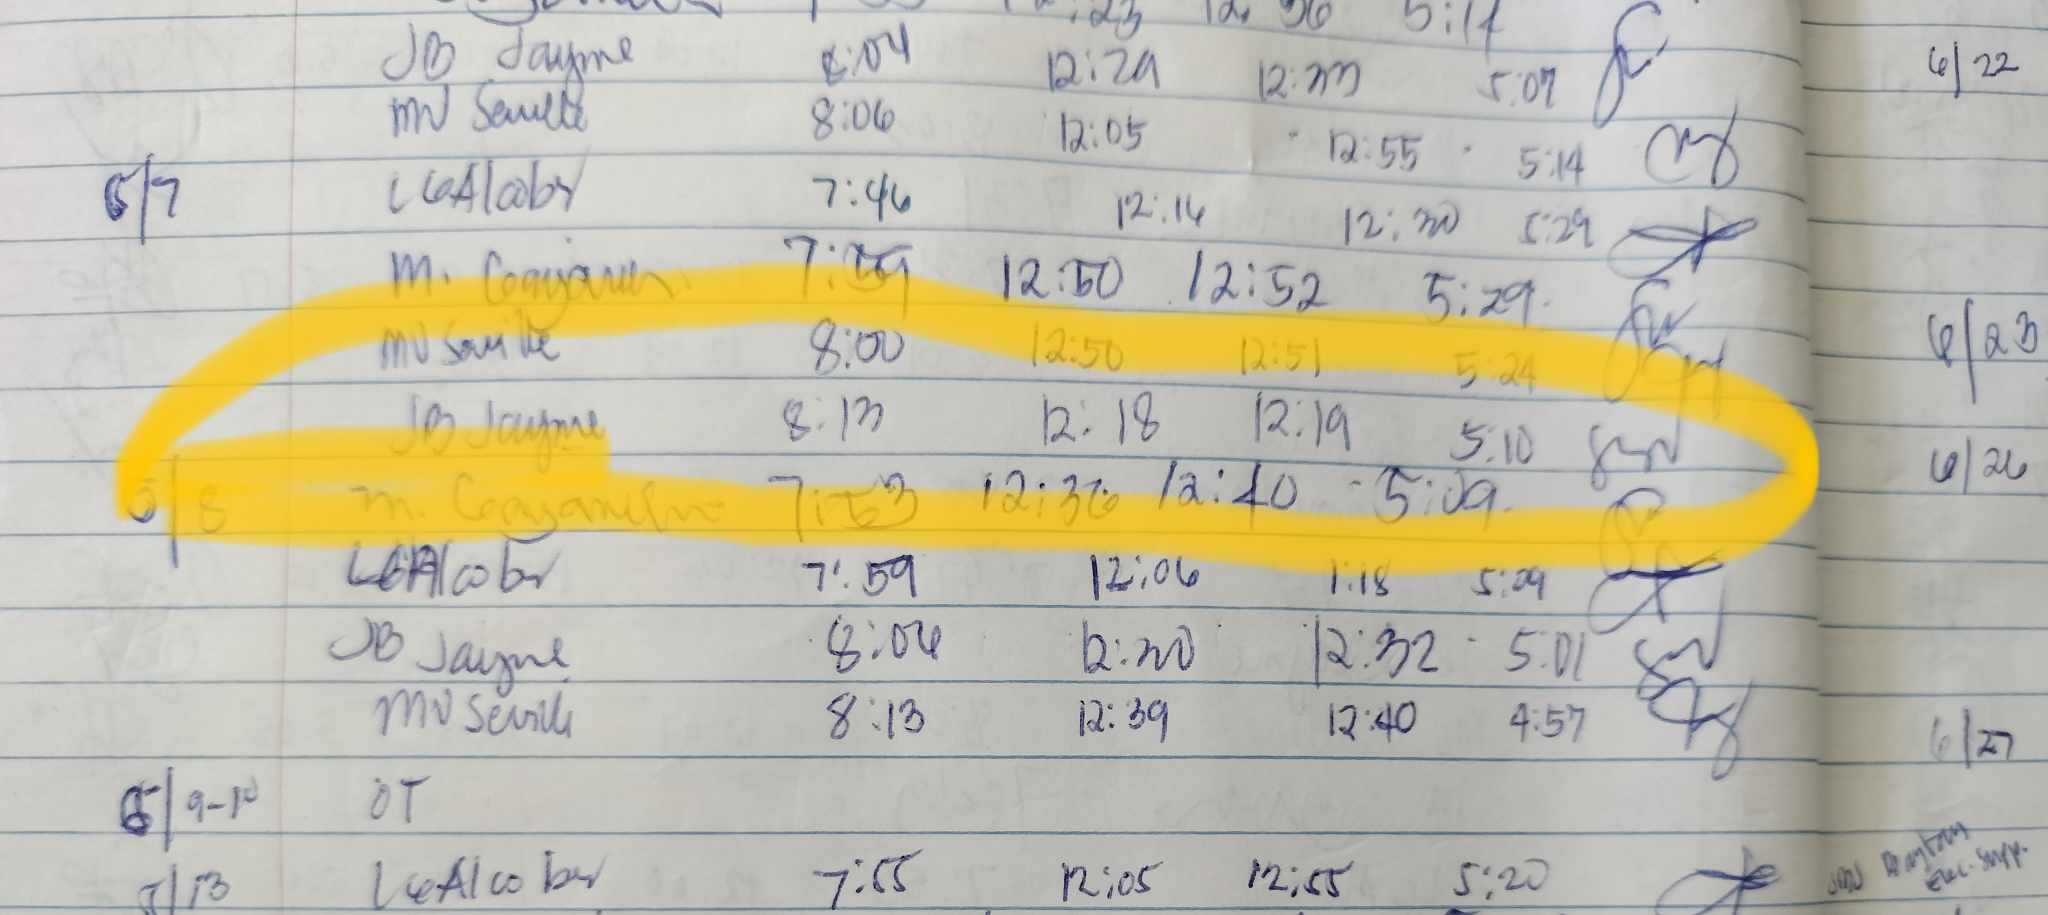 12:23 12:36 5:17
JB Jayme 8:04 12:29 12:33 5:07
MV Seville 8:06 12:05 12:55 5:14
5/7 LGAlcober 7:46 12:16 12:30 5:29
M. 7:59 12:50 12:52 5:29
MV Seville 8:00 12:50 12:51 5:24
JB Jayme 8:13 12:18 12:19 5:10
5/8 M. 7:53 12:36 12:40 5:09
LGAlcober 7:59 12:06 1:18 5:09
JB Jayme 8:04 12:30 12:32 5:01
MV Seville 8:13 12:39 12:40 4:57
5/9-10 OT
5/13 LGAlcober 7:55 12:05 12:55 5:20
6/22
6/23
6/26
6/27